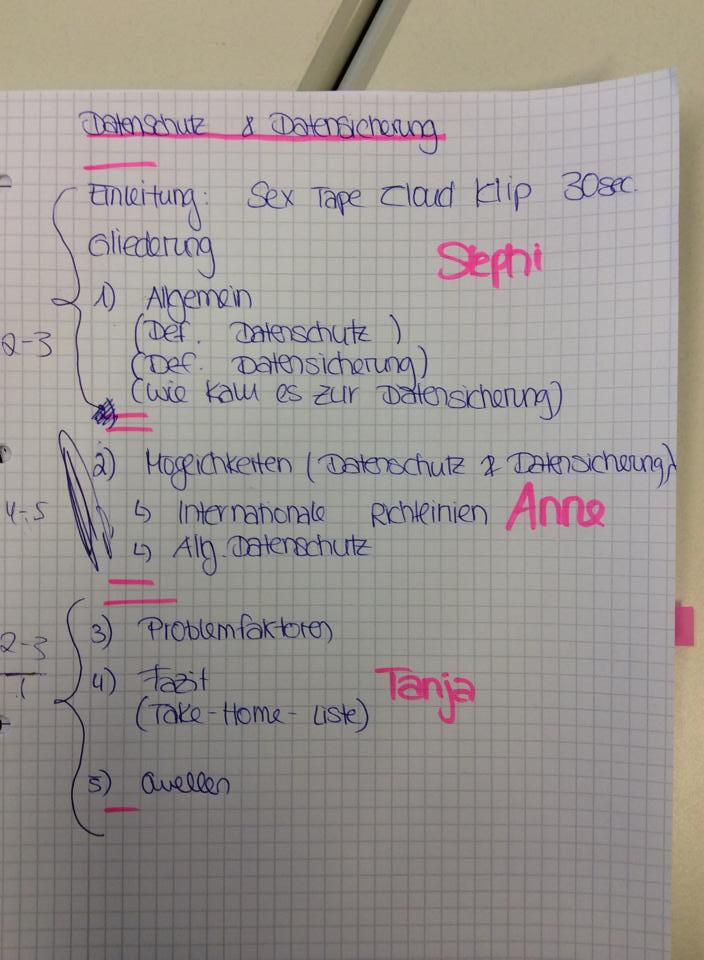 Datenschutz & Datensicherung
Einleitung: Sex Tape Cloud Klip 30sec.
Gliederung
Stephi
1) Allgemein
(Def. Datenschutz)
2-3
(Def. Datensicherung)
(wie kam es zur Datensicherung)
2) Möglichkeiten (Datenschutz & Datensicherung)
4-5
↳ Internationale Richtleinien Anne
↳ Allg. Datenschutz
3) Problemfaktoren
2-3
4) Fazit Tanja
1
(Take-Home-Liste)
5) Quellen